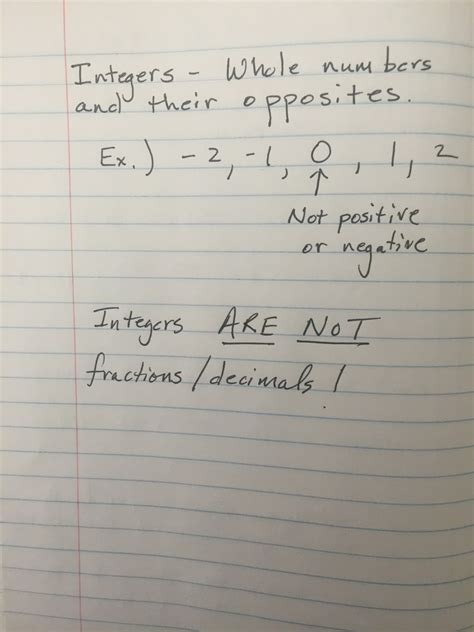 Integers - Whole numbers
and their opposites.
Ex.) -2, -1, 0, 1, 2
↑
Not positive
or negative
Integers ARE NOT
fractions/decimals!